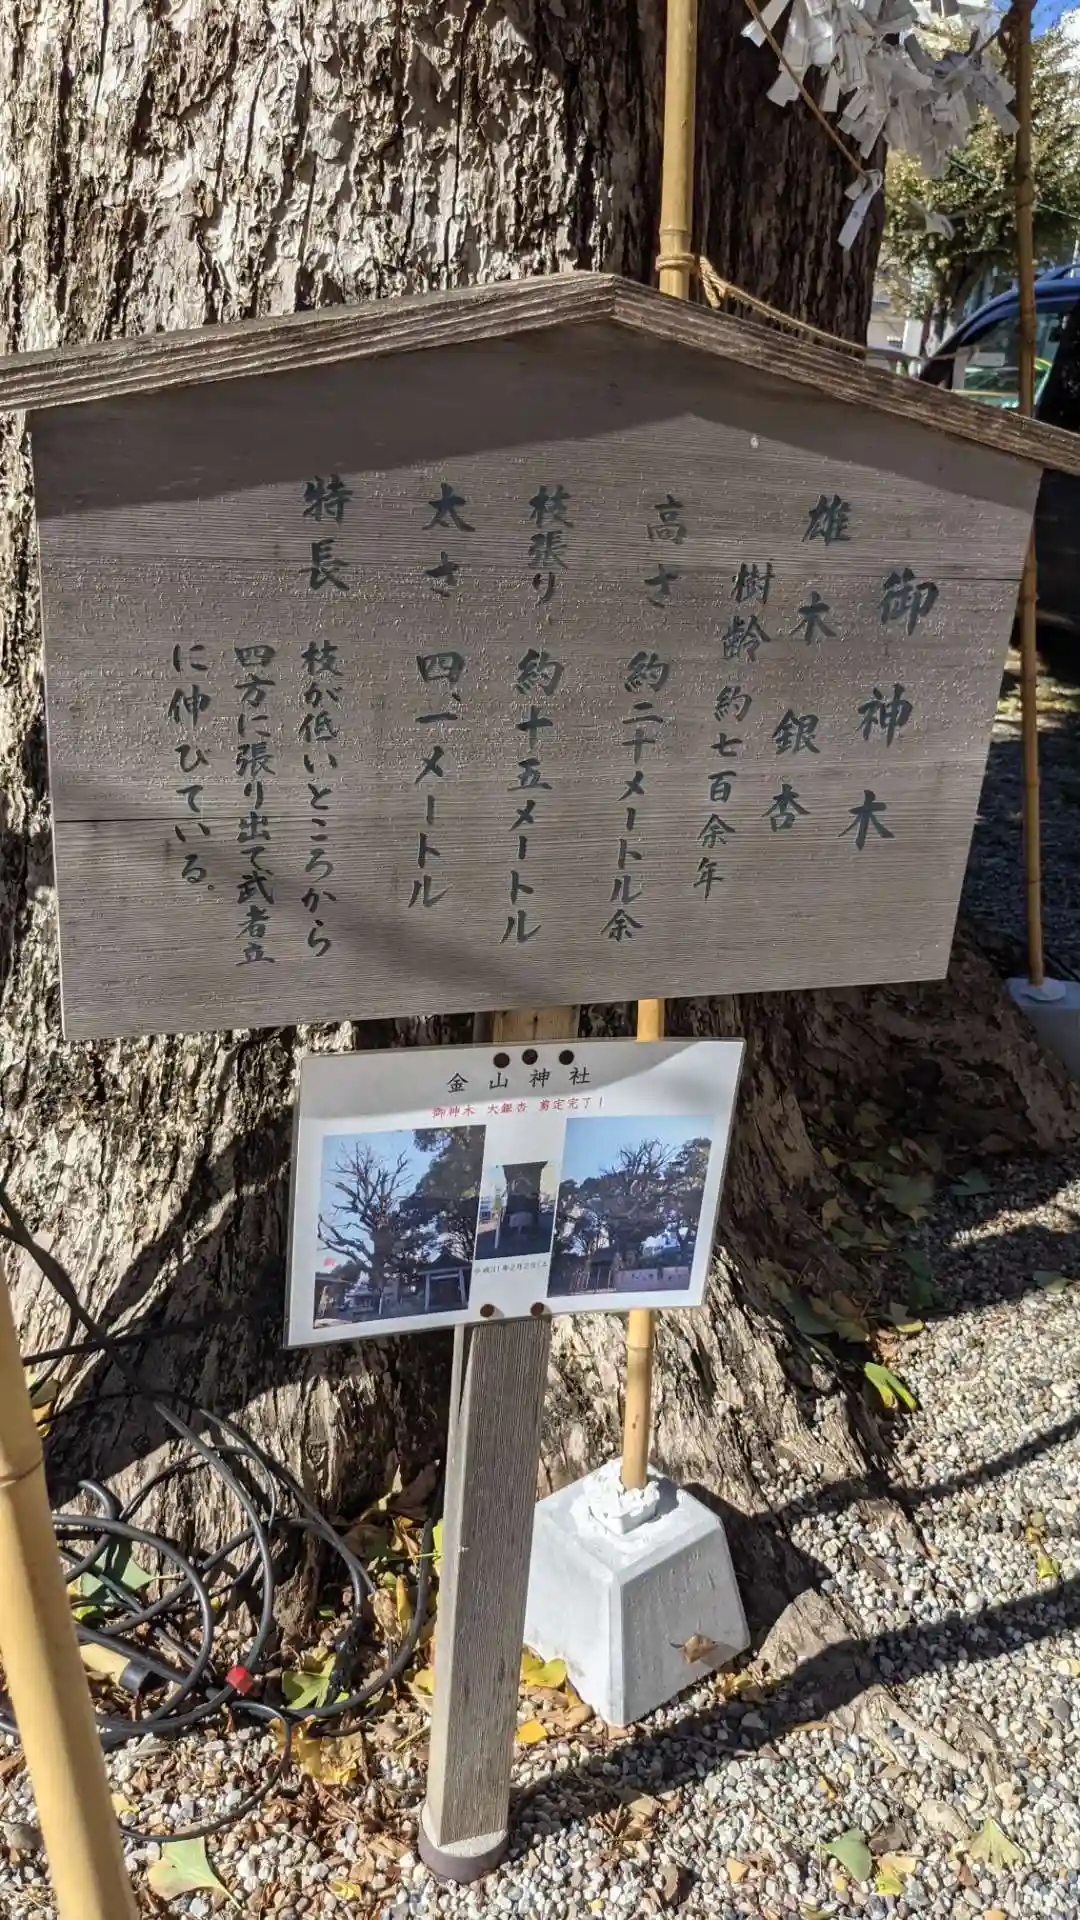 御神木
雄木銀杏
樹齢 約七百余年
高さ 約二十メートル余
枝張り 約十五メートル
太さ 四、一メートル
特長 枝が低いところから
四方に張り出て武者立
に伸びている。
金山神社
御神木 大銀杏 剪定完了!
平成31年2月2日(土